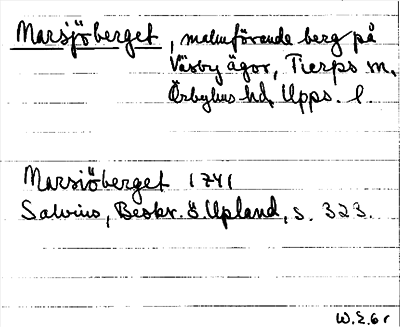 Marsjöberget, malmförande berg på
Väsby ägor, Tierps sn,
Örbyhus hd, Upps. l.
Marsiöberget 1741
Salvius, Beskr. ö. Upland, s. 323.
W.E. 61